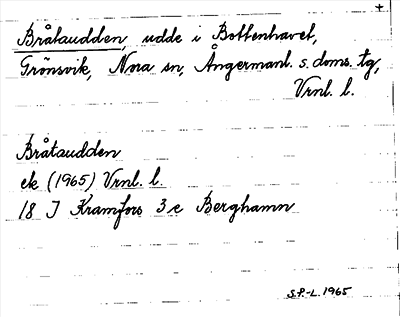 +
Bråtaudden, udde i Bottenhavet,
Grönsvik, Nora sn, Ångermanl. s. doms. tg,
Vrnl. l.
Bråtaudden
ek (1965) Vrnl. l.
18 J Kramfors 3 e Berghamn
S.P.-L. 1965